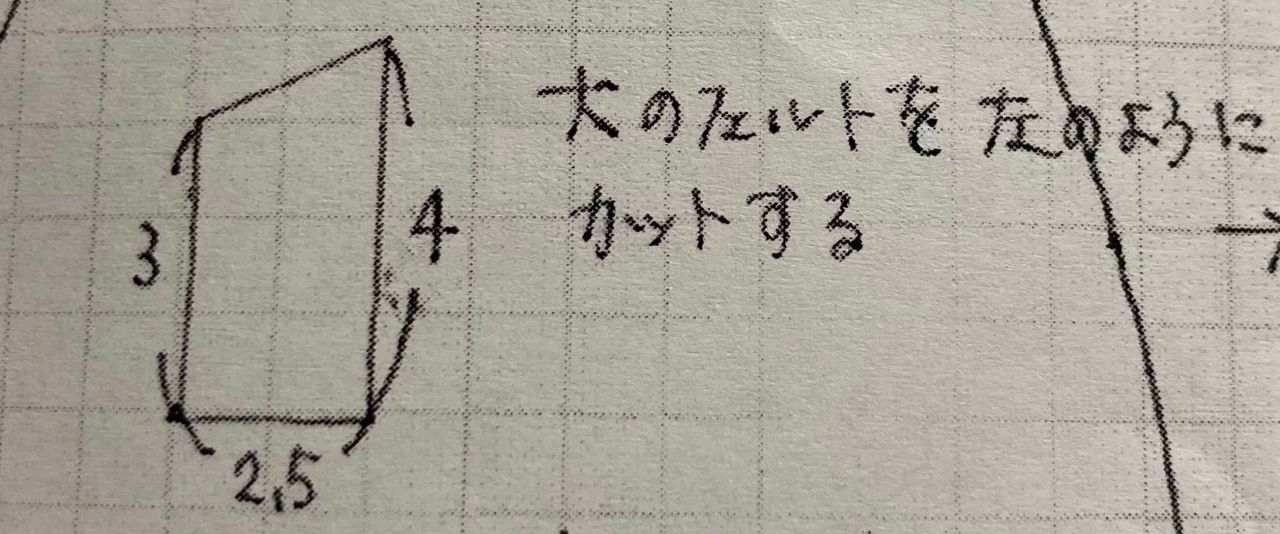 大のフェルトを左のように
カットする
3
4
2,5